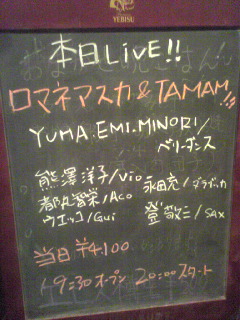 YEBISU
本日LiVE!!
ロマネマスカ&TAMAM!!
YUMA.EMI.MINORI/
ベリーダンス
熊澤洋子/Vio 永田充/ダラブッカ
都丸智栄/Aco
ウエッコ/Gui 登敬三/SAX
当日 ¥4,100
19:30オープン 20:00スタート